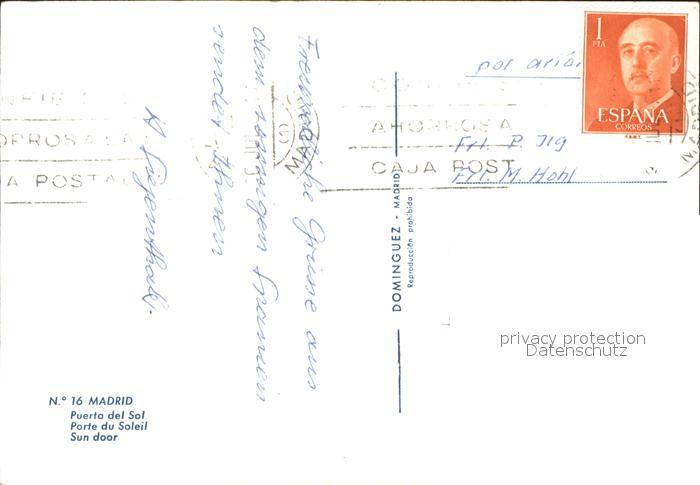 Freundliche Grüsse aus
dem sonnigen Spanien
sendet Ihnen
por avión
1
PTA
ESPAÑA
CORREOS
F.N.M.T.
AHORROSA
CAJA POST
Frl. P. Ilg
Frl. M. Hohl
DOMINGUEZ - MADRID
Reproducción prohibida
privacy protection
Datenschutz
N.º 16 MADRID
Puerta del Sol
Porte du Soleil
Sun door